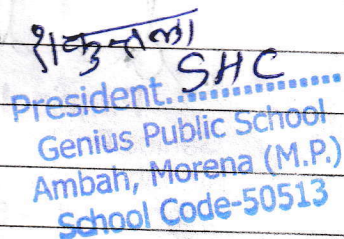 शकुन्तला
SHC
President..............
Genius Public School
Ambah, Morena (M.P.)
School Code-50513